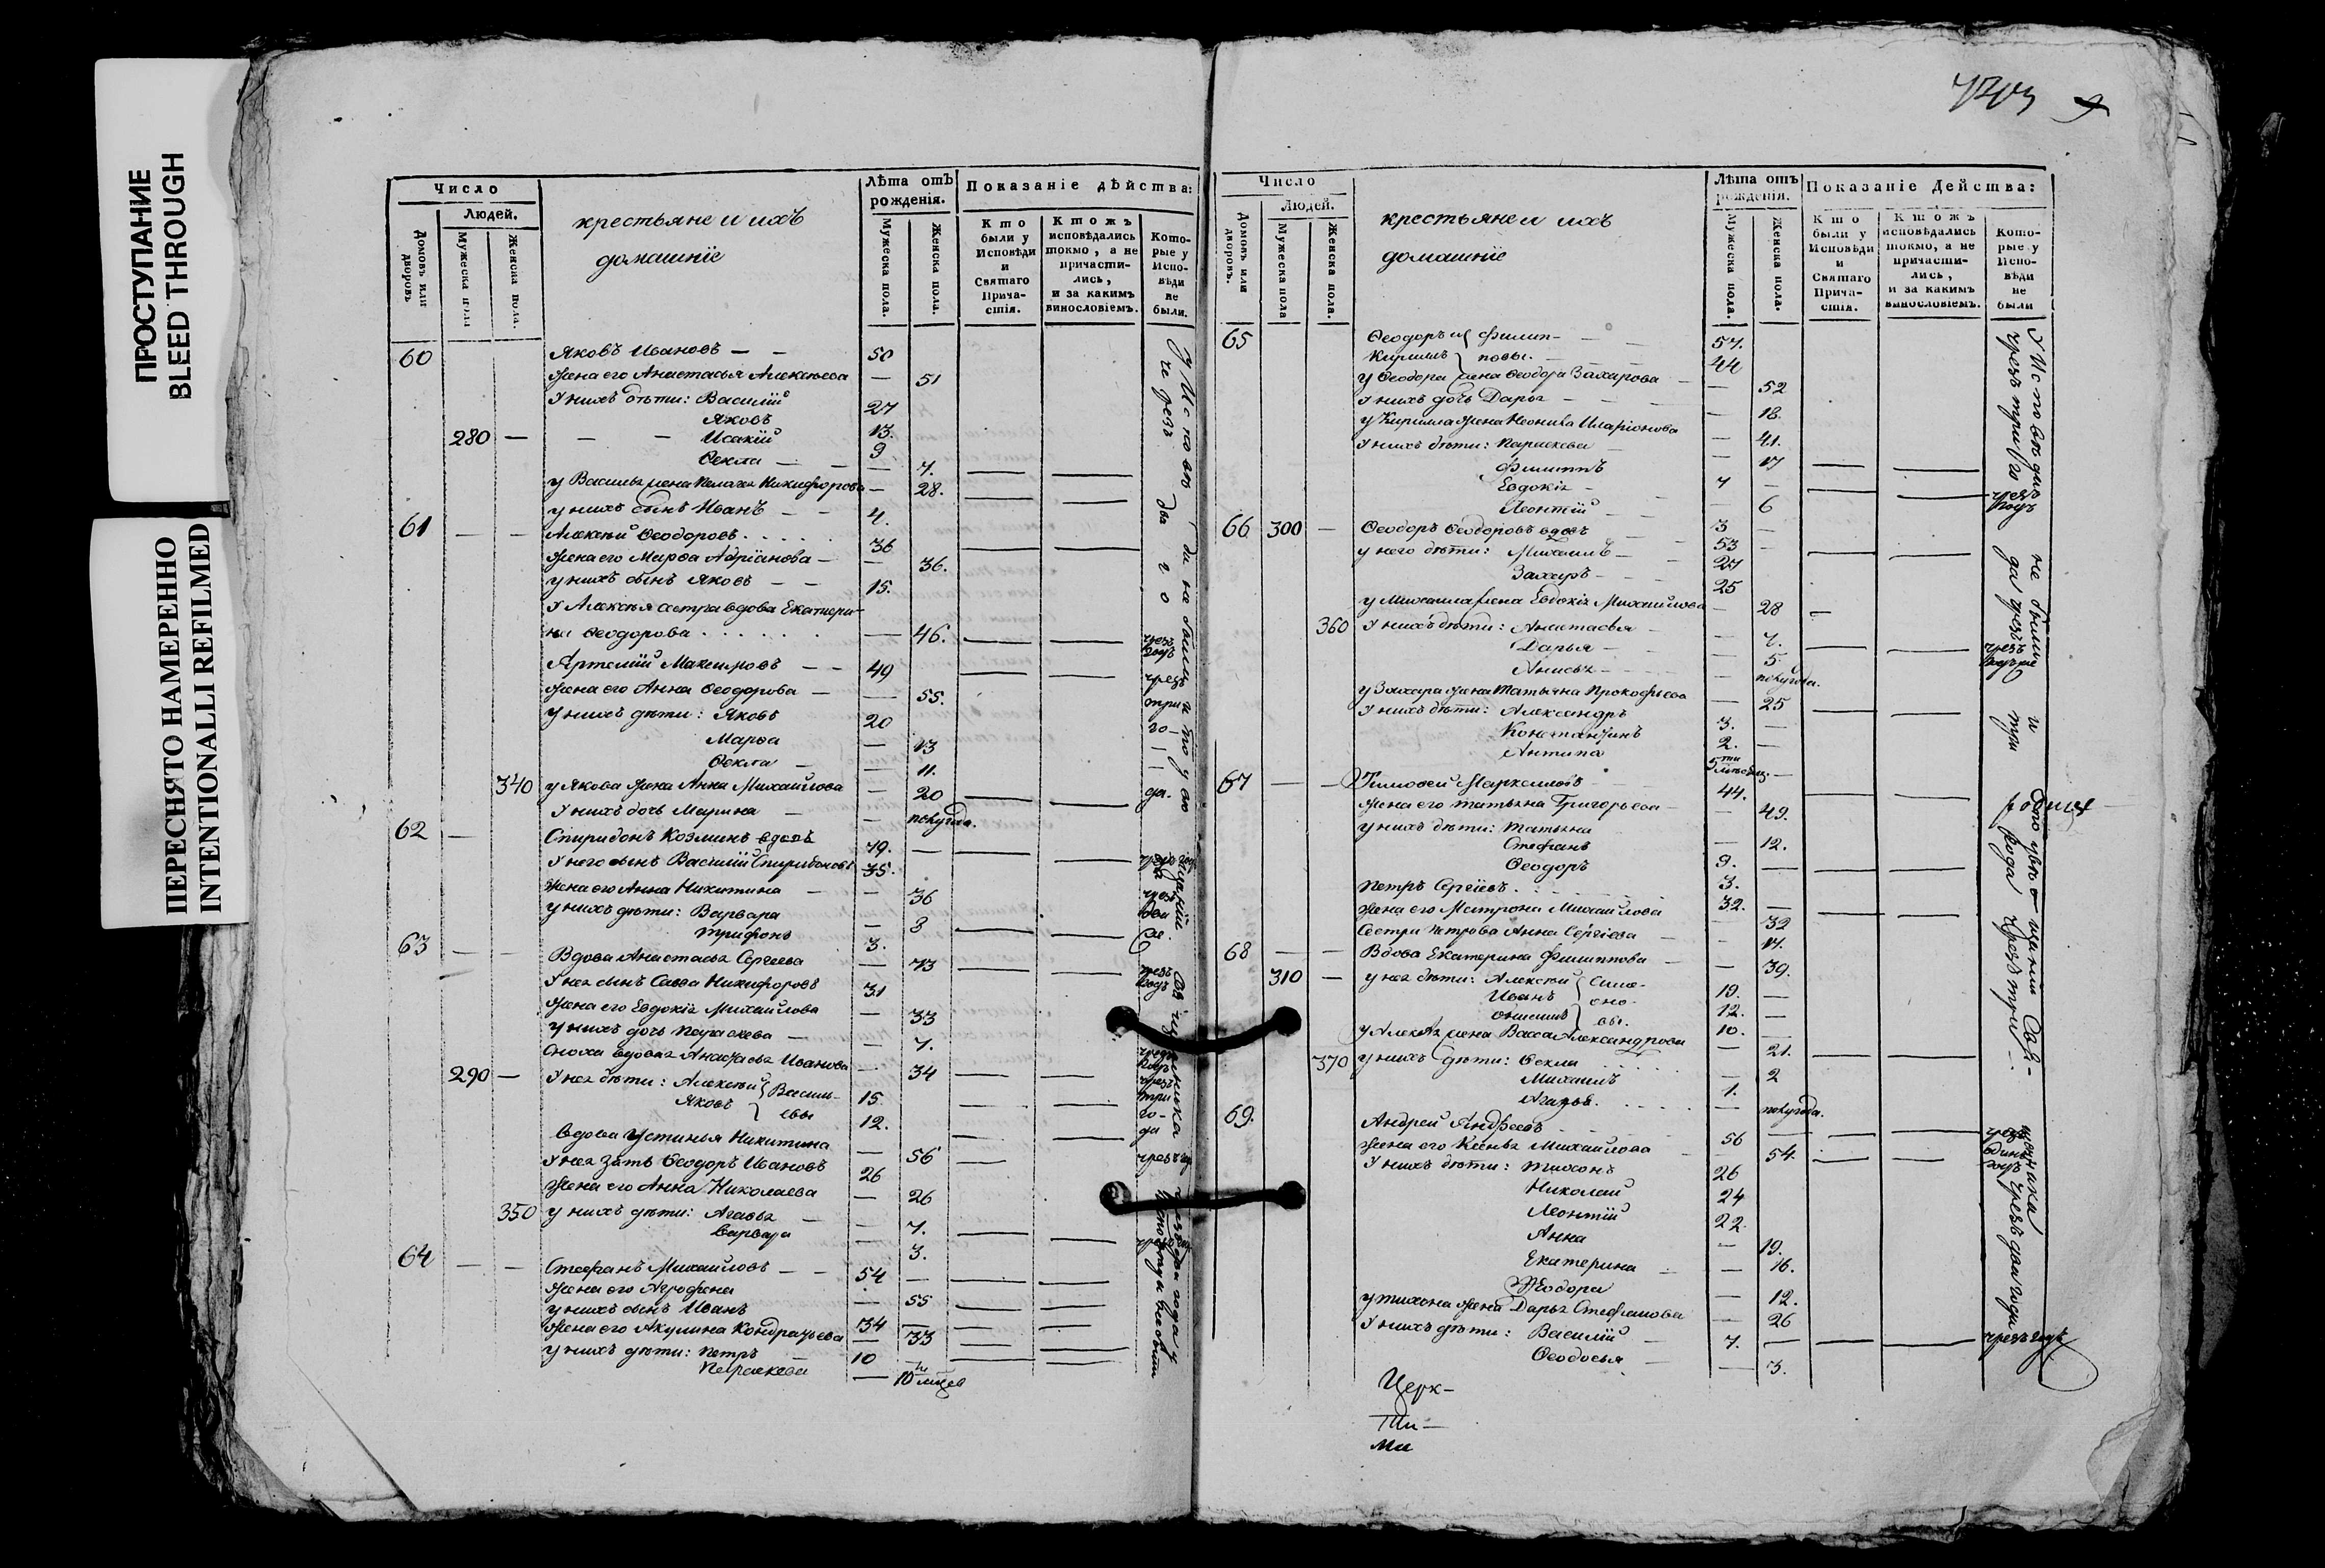 ПРОСТУПАНИЕ
BLEED THROUGH
ПЕРЕСНЯТО НАМЕРЕННО
INTENTIONALLI REFILMED
Число
Людей.
Домовъ или дворовъ
Мужеска пола
Женска пола.
крестьяне и ихъ
домашніе
Лѣта отъ рожденія.
Мужеска пола.
Женска пола.
Показаніе дѣйства:
Кто были у Исповѣди и Святаго Прича-стія.
Ктожъ исповѣдались токмо, а не причасти-лись, и за какимъ винословіемъ.
Кото-рые у Испо-вѣди не были.
60 Яковъ Ивановъ — — 50
жена его Анастасья Алексеева — 51
у нихъ дѣти: Василій 27
Яковъ 13.
280 — — — Исакій 9
Ѳекла — — 7.
у Василья жена Пелагея Никифорова — 28.
у нихъ сынъ Иванъ — — 4.
61 — — Алексѣй Ѳеодоровъ 36
жена его Марѳа Адріанова — — 36.
у нихъ сынъ Яковъ — — 15.
у Алексѣя сестра вдова Екатери-
на Ѳеодорова — 46. чрезъ годъ
Артемій Максимовъ — — 49
жена его Анна Ѳеодорова — — 55.
у нихъ дѣти: Яковъ 20
Марѳа — 13
Ѳекла — — 11.
340 у Якова жена Анна Михайлова — 20
у нихъ дочь Марина — — полугода.
62 — Спиридонъ Козминъ вдовъ 79. —
у него сынъ Василій Спиридоновъ 35.
жена его Анна Никитина — — 36
у нихъ дѣти: Варвара — 8
Трифонъ 3.
63 — — Вдова Анастасья Сергеева — 73
у нея сынъ Савва Никифоровъ 31
жена его Евдокія Михайлова — 33
у нихъ дочь Параскева — — 7.
сноха вдова Анастасья Иванова — 34
290 — у нея дѣти: Алексѣй } Василь- 15.
Яковъ } евы 12.
вдова Устинья Никитина — 56
у нея зять Ѳеодоръ Ивановъ 26
жена его Анна Николаева — 26
350 у нихъ дѣти: Агаѳья — — 7.
Варвара — 3.
64 — — Стефанъ Михайловъ — — 54 —
жена его Агрофена — 55
у нихъ сынъ Иванъ 34 —
жена его Акулина Кондратьева — 33
у нихъ дѣти: Петръ 10 —
Параскева —
Число
Людей.
Домовъ или дворовъ.
Мужеска пола
Женска пола.
крестьяне и ихъ
домашніе
Лѣта отъ рожденія.
Мужеска пола.
Женска пола.
Показаніе Действа:
Кто были у Исповѣди и Святаго Прича-стія.
Ктожъ исповѣдались токмо, а не причасти-лись, и за какимъ винословіемъ.
Кото-рые у Испо-вѣди не были
65 Ѳеодоръ и } Филип- 57.
Кирилъ } повы. — 44
у Ѳеодора жена Ѳеодора Захарова — — 52
у нихъ дочь Дарья — — 18.
у Кирилла жена Неонила Иларіонова — 41.
у нихъ дѣти: Параскева — — 17
Филиппъ 7 —
Евдокія — — 6
Леонтій 3 —
66 300 — Ѳеодоръ Ѳеодоровъ вдовъ 53 —
у него дѣти: Михаилъ — 27
Захаръ — 25
у Михаила жена Евдокія Михайлова — 28
360 у нихъ дѣти: Анастасья — — 7.
Дарья — — 5.
Анисья — — полугода.
у Захара жена Татьяна Прокофьева — 25
у нихъ дѣти: Александръ 3. —
Константинъ 2. —
Антипа
67 — — Тимоѳей Маркелловъ 44.
жена его Татьяна Григорьева — — 49.
у нихъ дѣти: Татьяна — 12.
Стефанъ 9.
Ѳеодоръ 3.
Петръ Сергіевъ 32. —
жена его Матрона Михайлова — 32
Сестра Петрова Анна Сергіева — — 17.
68 — — Вдова Екатерина Филиппова — — 39.
310 — у нея дѣти: Алексѣй } Симе- 19. —
Иванъ } оно- 12. —
Онисимъ } вы. 10. —
у Алексѣя жена Васса Александрова — 21.
370 у нихъ дѣти: Ѳекла — 2
Михаилъ 1.
Агаѳья — полугода.
69. Андрей Андреевъ 56 —
жена его Ксенья Михайлова — — 54.
у нихъ дѣти: Тихонъ 26
Николай 24
Леонтій 22.
Анна — 19.
Екатерина — — 16.
Ѳеодора — 12.
у Тихона жена Дарья Стефанова — 26
у нихъ дѣти: Василій — 7. —
Ѳеодосья — — 3.
чрезъ годъ
Церк-
ми